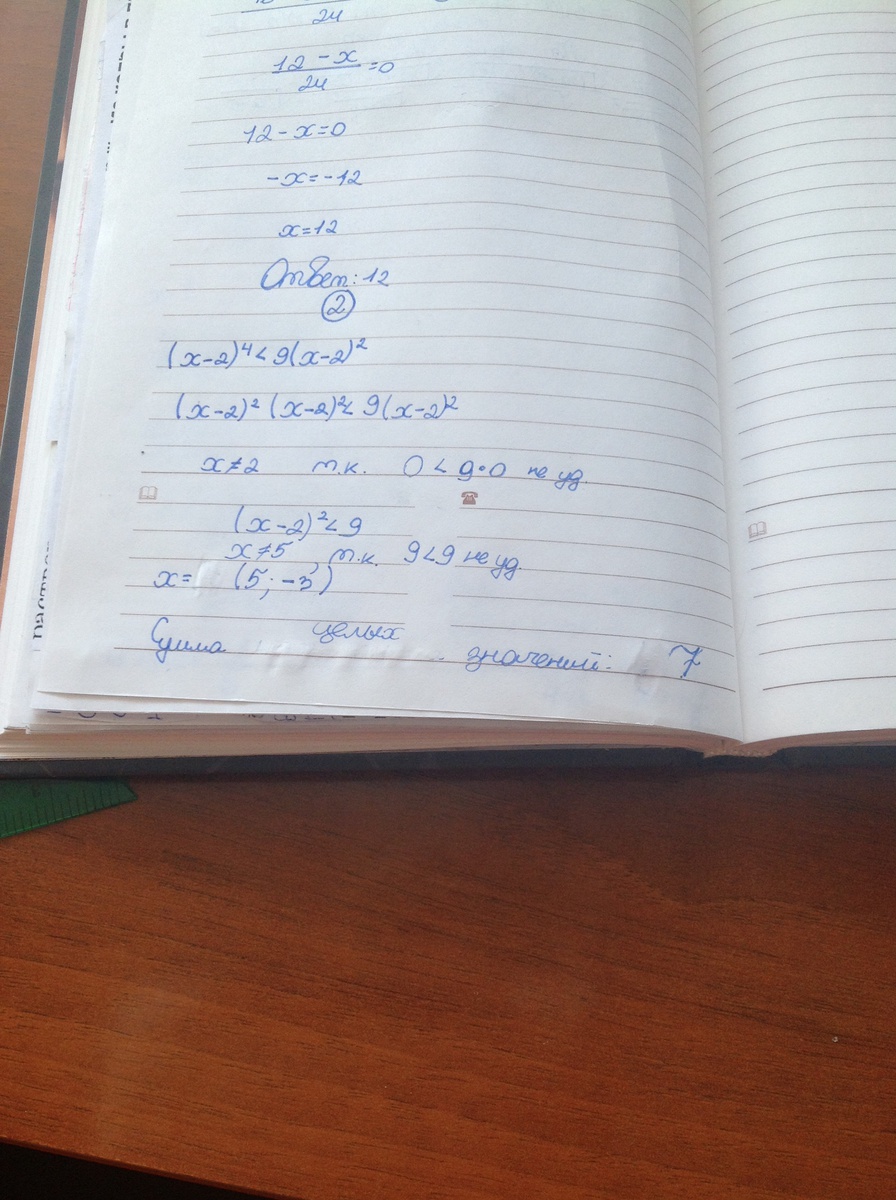 24
12 - x
24
=0
12 - x = 0
-x = -12
x = 12
Ответ: 12
2
(x-2)⁴ < 9(x-2)²
(x-2)² (x-2)² < 9(x-2)²
x ≠ 2 т.к. 0 < 9·0 не уд.
(x-2)² < 9
x ≠ 5, т.к. 9 < 9 не уд.
x = (5; -3)
Сумма целых значений: 7